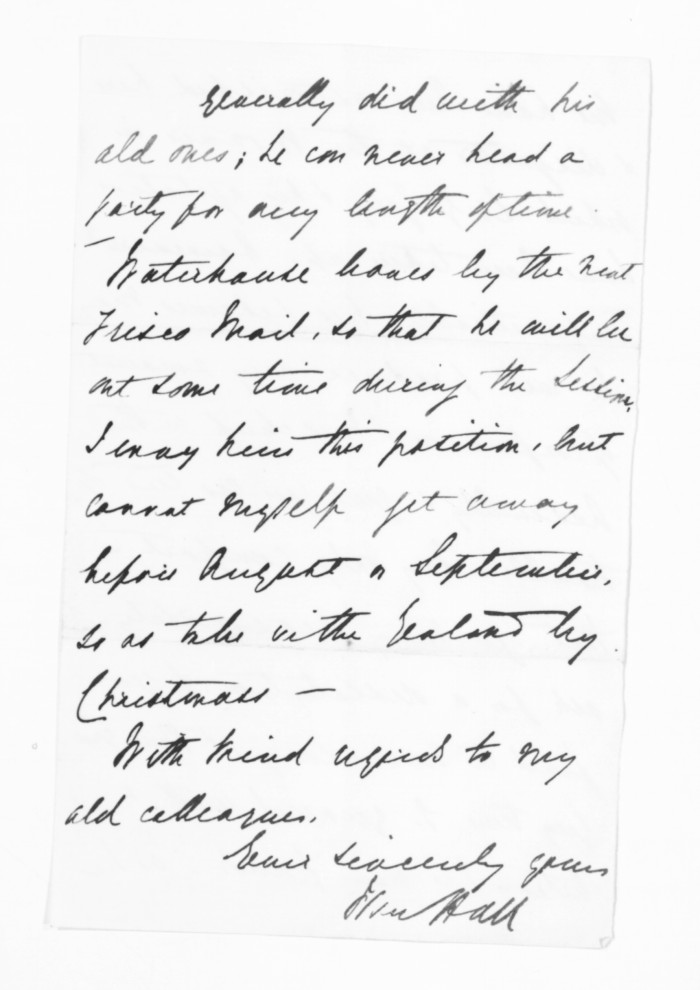 generally did with his
old ones; he can never head a
party for any length of time.
Waterhouse leaves by the next
Frisco Mail, so that he will be
out some time during the Session,
I envy him this position, but
cannot myself get away
before August or September,
so as to be in the Zealand by
Christmass —
With kind regards to my
old colleagues.
Ever sincerely yours
Hall